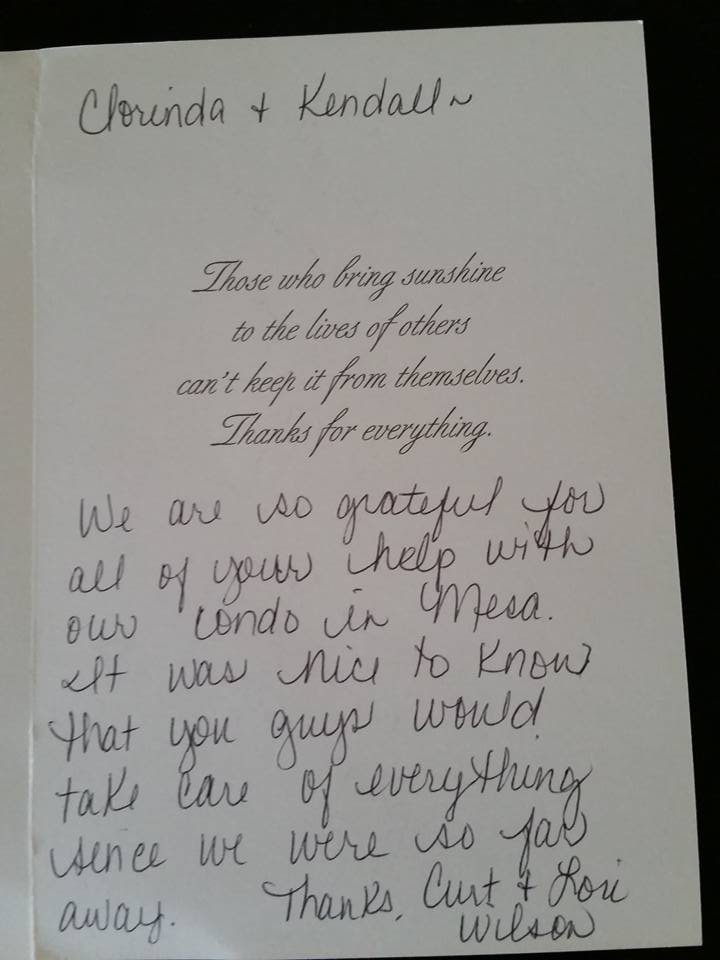 Clorinda + Kendall ~
Those who bring sunshine
to the lives of others
can't keep it from themselves.
Thanks for everything.
We are so grateful for
all of your help with
our condo in Mesa.
It was nice to know
that you guys would
take care of everything
sence we were so far
away. Thanks, Curt + Lori
Wilson